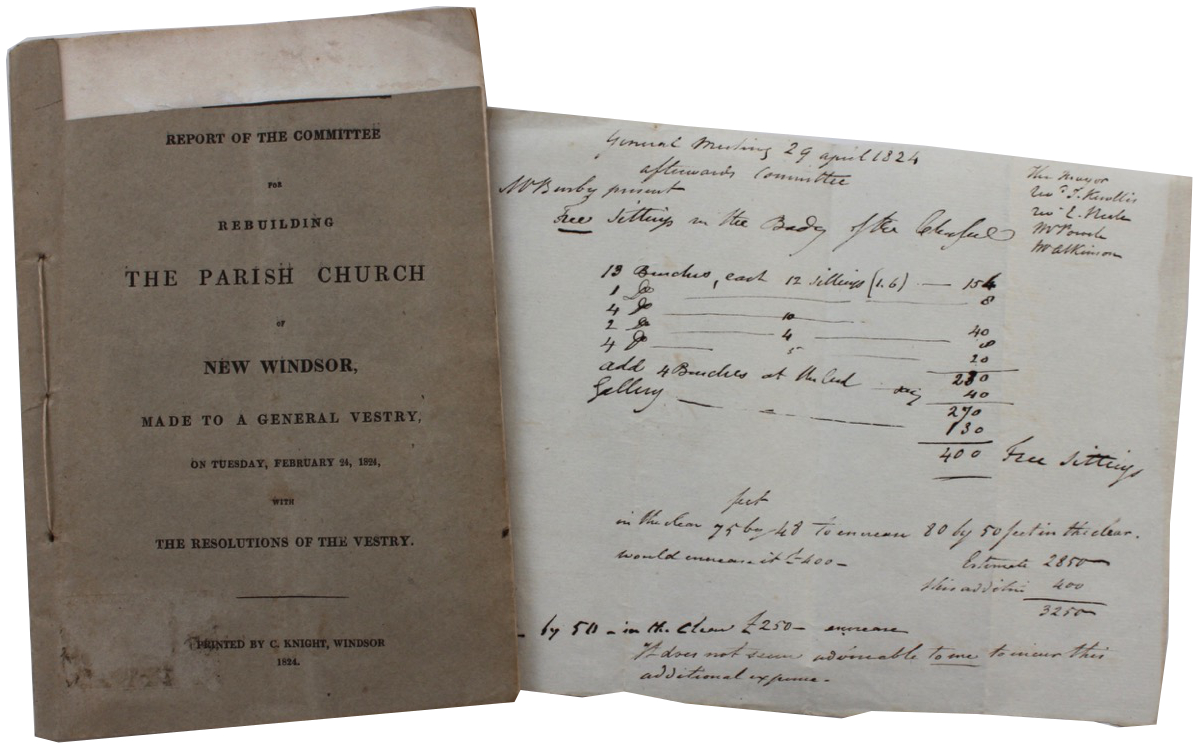 REPORT OF THE COMMITTEE
FOR
REBUILDING
THE PARISH CHURCH
OF
NEW WINDSOR,
MADE TO A GENERAL VESTRY,
ON TUESDAY, FEBRUARY 24, 1824,
WITH
THE RESOLUTIONS OF THE VESTRY.
PRINTED BY C. KNIGHT, WINDSOR
1824.
General Meeting 29 april 1824
afterwards Committee
Mr present
The Mayor
Mr Atkinson
Free Sittings in the Body of the
13 Benches, each 12 Sittings (1.6) 156
1 Do 8
4 Do 10 40
2 Do 4 8
4 Do 5 20
add 4 Benches at the End say 40
270
Gallery 130
400 Free Sittings
feet
in the clear 75 by 48 To increase 80 by 50 feet in the clear.
would increase it £400
Estimate 2850
this addition 400
3250
by 50 in the Clear £250 increase
It does not seem adviseable to me to incur this
additional expense.